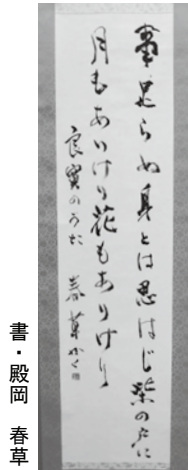 事足らぬ身とは思はじ柴の戸に
月もありけり花もありけり
良寛のうた 春草かく
書・殿岡 春草